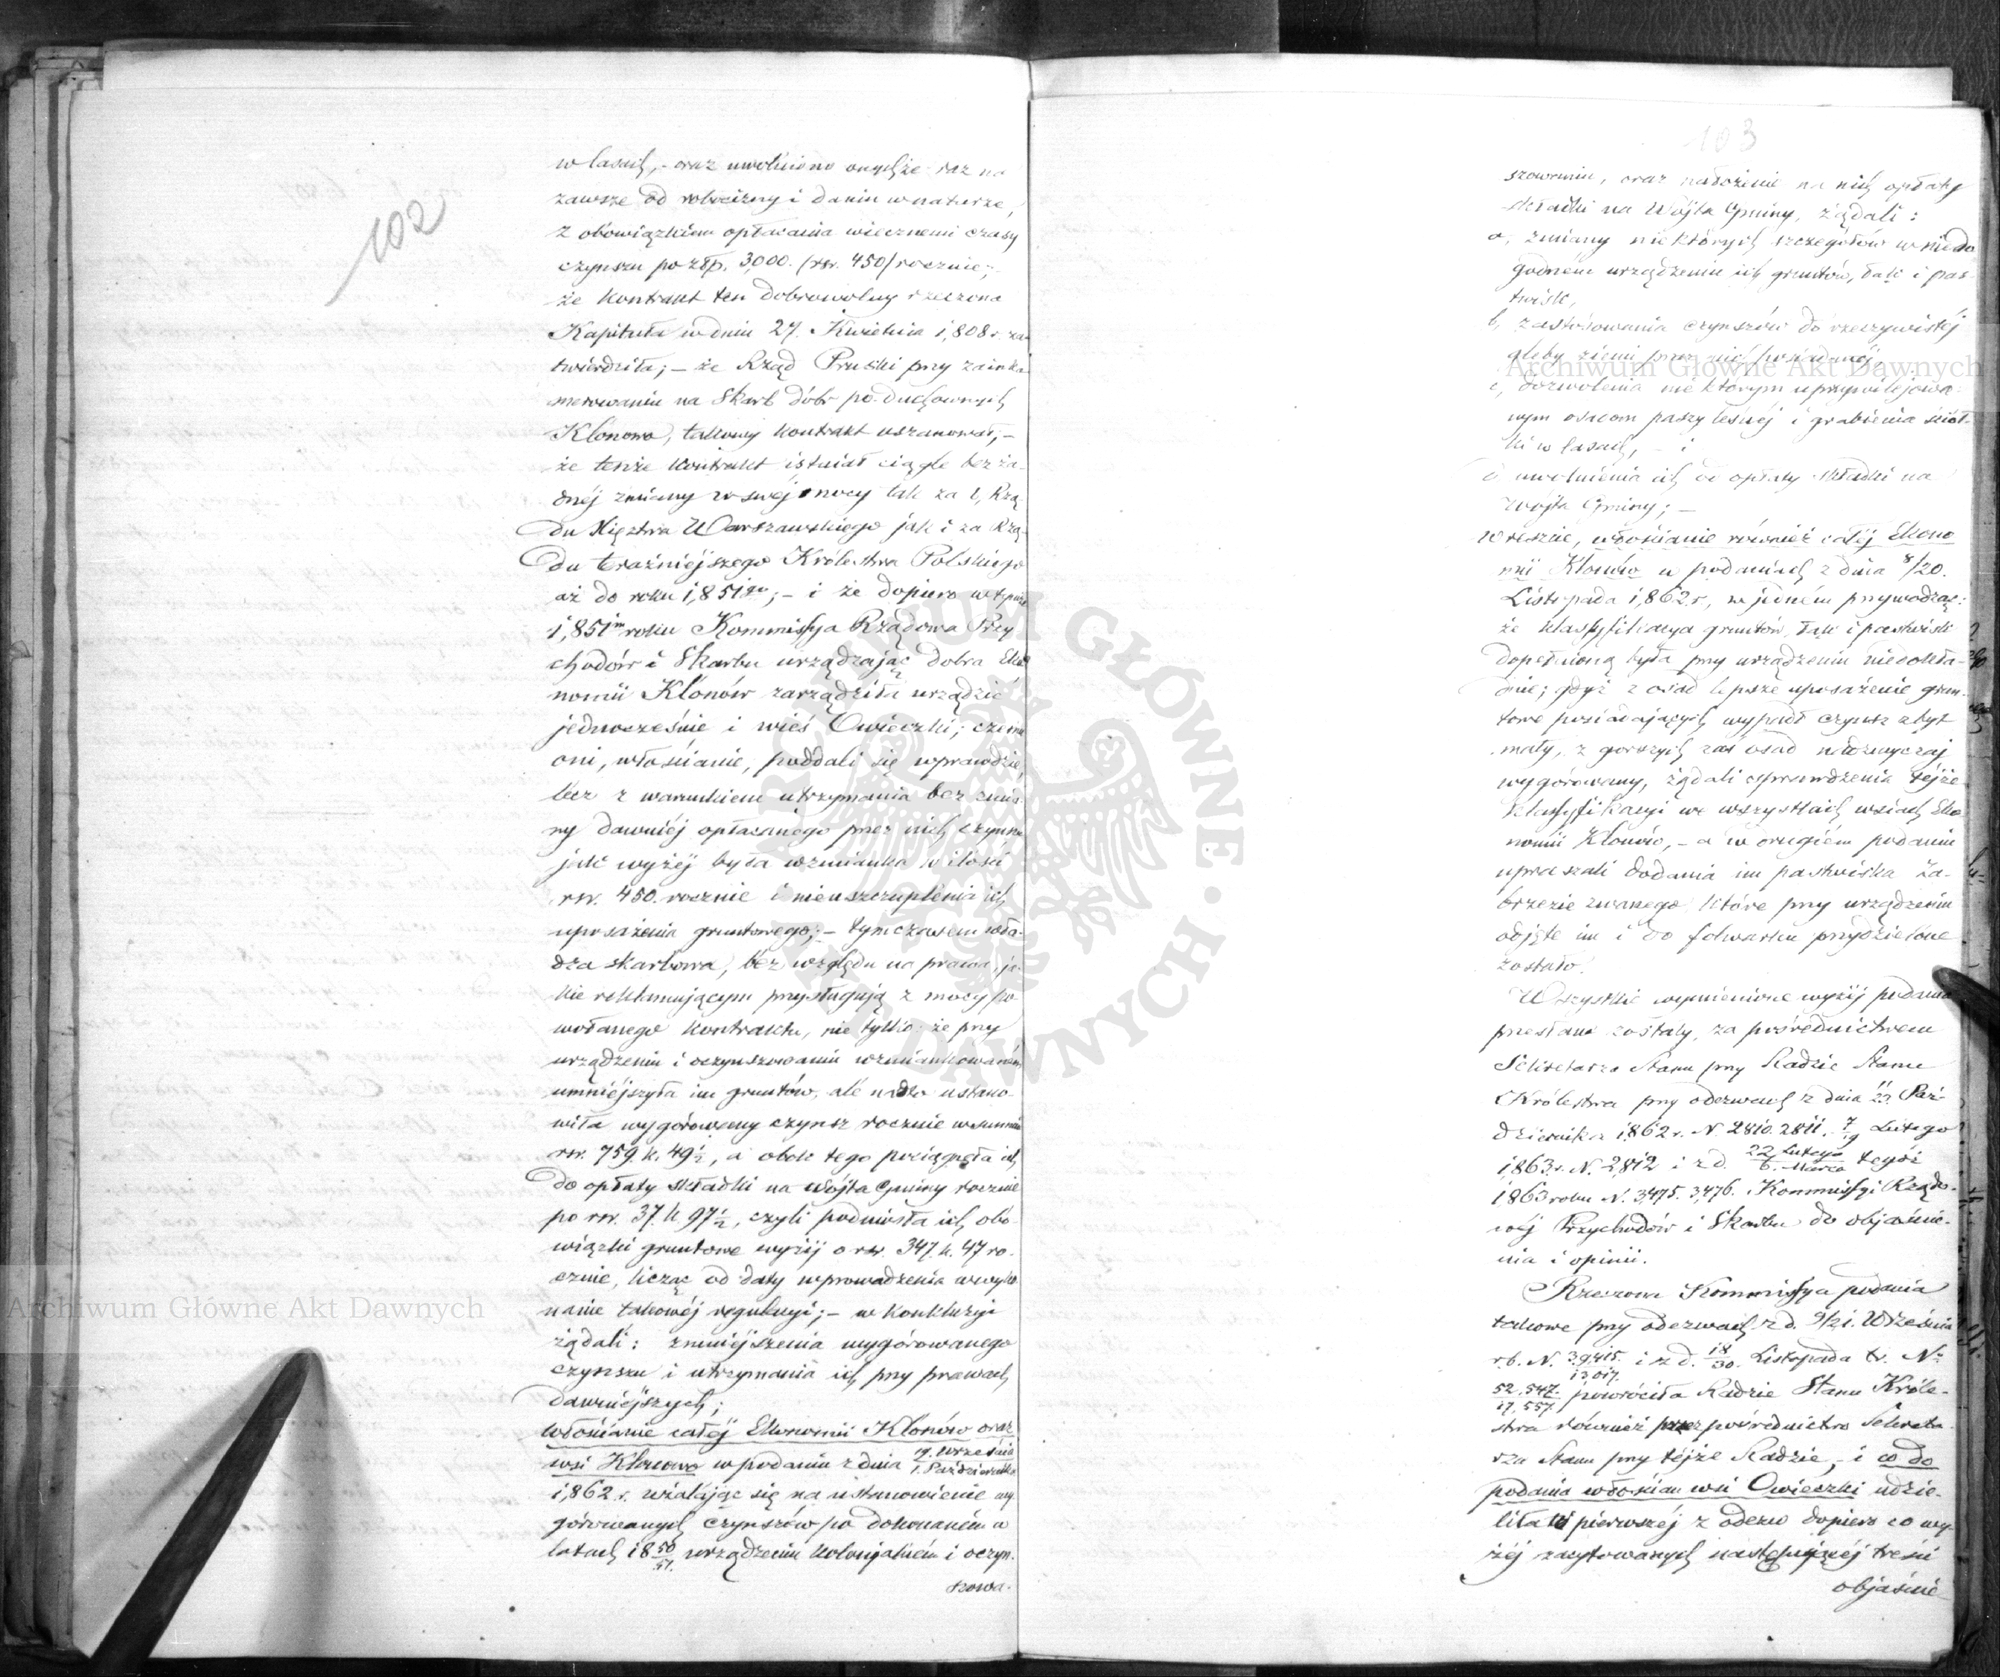 102
w lasach, - oraz uwolniono onychże raz na
zawsze od robocizny i danin w naturze,
z obowiązkiem opłacania wiecznemi czasy
czynszu po złp. 3,000. (rsr. 450) rocznie; -
że kontrakt ten dobrowolny rzeczona
Kapituła w dniu 27. Kwietnia 1,808 r. za-
twierdziła; - że Rząd Pruski przy zainka-
merowaniu na Skarb dóbr po-duchownych
Klonowa, takowy kontrakt uszanował, -
że tenże kontrakt istniał ciągle bez ża-
dnéj zmiany w swéj mocy tak za b. Rzą-
du Xięztwa Warszawskiego jak i za Rzą-
du teraźniejszego Królestwa Polskiego
aż do roku 1,851go; - i że dopiero w tymże
1,851m roku Kommissya Rządowa Przy-
chodów i Skarbu urządzając dobra Eko-
nomii Klonów zarządziła urządzić
jednocześnie i wieś Owieczki; czemu
oni, włościanie, poddali się wprawdzie,
lecz z warunkiem utrzymania bez zmia-
ny dawniéj opłacanego przez nich czynszu
jak wyżéj była wzmianka w ilości
rsr. 450. rocznie i nieuszczuplenia ich
uposażenia gruntowego; - tymczasem wła-
dza skarbowa, bez względu na prawa, ja-
kie reklamującym przysługują z mocy po-
wołanego kontraktu, nie tylko że przy
urządzeniu i oczynszowaniu wzmiankowaném
umniéjszyła im gruntów, ale nadto ustano-
wiła wygórowany czynsz rocznie w summie
rsr. 759. k. 49½, a obok tego pociągnęła ich
do opłaty składki na Wójta Gminy rocznie
po rsr. 37. k. 97½, czyli podniosła ich obo-
wiązki gruntowe wyżéj o rsr. 347. k. 47 ro-
cznie, licząc od daty wprowadzenia w wyko-
nanie takowéj regulacyi; - w konkluzyi
żądali: zmniejszenia wygórowanego
czynszu i utrzymania ich przy prawach
dawniéjszych;
włościanie całéj Ekonomii Klonów oraz
wsi Klonowa w podaniu z dnia 19. Września / 1. Października
1,862 r. użalając się na ustanowienie wy-
górowanych czynszów po dokonaném w
latach 18 50/51. urządzeniu kolonjalném i oczyn-
szowa-
103
szowaniu, oraz nałożenie na nich opłaty
składki na Wójta Gminy, żądali:
a, zmiany niektórych szczegółów w niedo-
godném urządzeniu ich gruntów, łąk i pas-
twisk,
b, zastosowania czynszów do rzeczywistéj
gleby ziemi przez nich posiadanéj,
c, dozwolenia niektórym uprzywilejowa-
nym osadom paszy leśnéj i grabienia ściół-
ki w lasach, - i
d, uwolnienia ich od opłaty składki na
Wójta Gminy; -
wreszcie, włościanie również całéj Ekono-
mii Klonów w podaniach z dnia 8/20.
Listopada 1,862 r., w jedném przywodząc:
że klassyfikacya gruntów, łąk i pastwisk
dopełnioną była przy urządzeniu niedokła-
dnie; gdyż z osad lepsze uposażenie grun-
towe posiadających wypadł czynsz zbyt
mały, z gorszych zaś osad nadzwyczaj
wygórowany, żądali sprawdzenia tejże
klassyfikacyi we wszystkich wsiach Eko-
nomii Klonów, - a w drugiém podaniu
upraszali dodania im pastwiska Za-
brzezie zwanego, które przy urządzeniu
odjęte im i do folwarku przydzielone
zostało.
Wszystkie wymienione wyżéj podania
przesłane zostały, za pośrednictwem
Sekretarza Stanu przy Radzie Stanu
Królestwa przy odezwach z dnia 11/23. Paź-
dziernika 1,862 r. N. 2810. 2811, 7/19 Lutego
1,863 r. N. 2,812 i z d. 22 Lutego / 6. Marca tegoż
1,863 roku N. 3,475. 3,476. Kommissyi Rządo-
wéj Przychodów i Skarbu do objaśnie-
nia i opinii.
Rzeczona Kommissya podania
takowe przy odezwach z d. 9/21. Września
r. b. N. 39,415. / 13,017. i z d. 18/30. Listopada tr. Nr
52,547. / 17,557. powróciła Radzie Stanu Króle-
stwa również przez pośrednictwo Sekreta-
rza Stanu przy téjże Radzie, - i co do
podania włościan wsi Owieczki udzie-
liła w pierwszéj z odezw dopiero co wy-
żéj zacytowanych następującéj treści
objaśnie-
Archiwum Główne Akt Dawnych
Archiwum Główne Akt Dawnych
ARCHIWUM GŁÓWNE AKT DAWNYCH